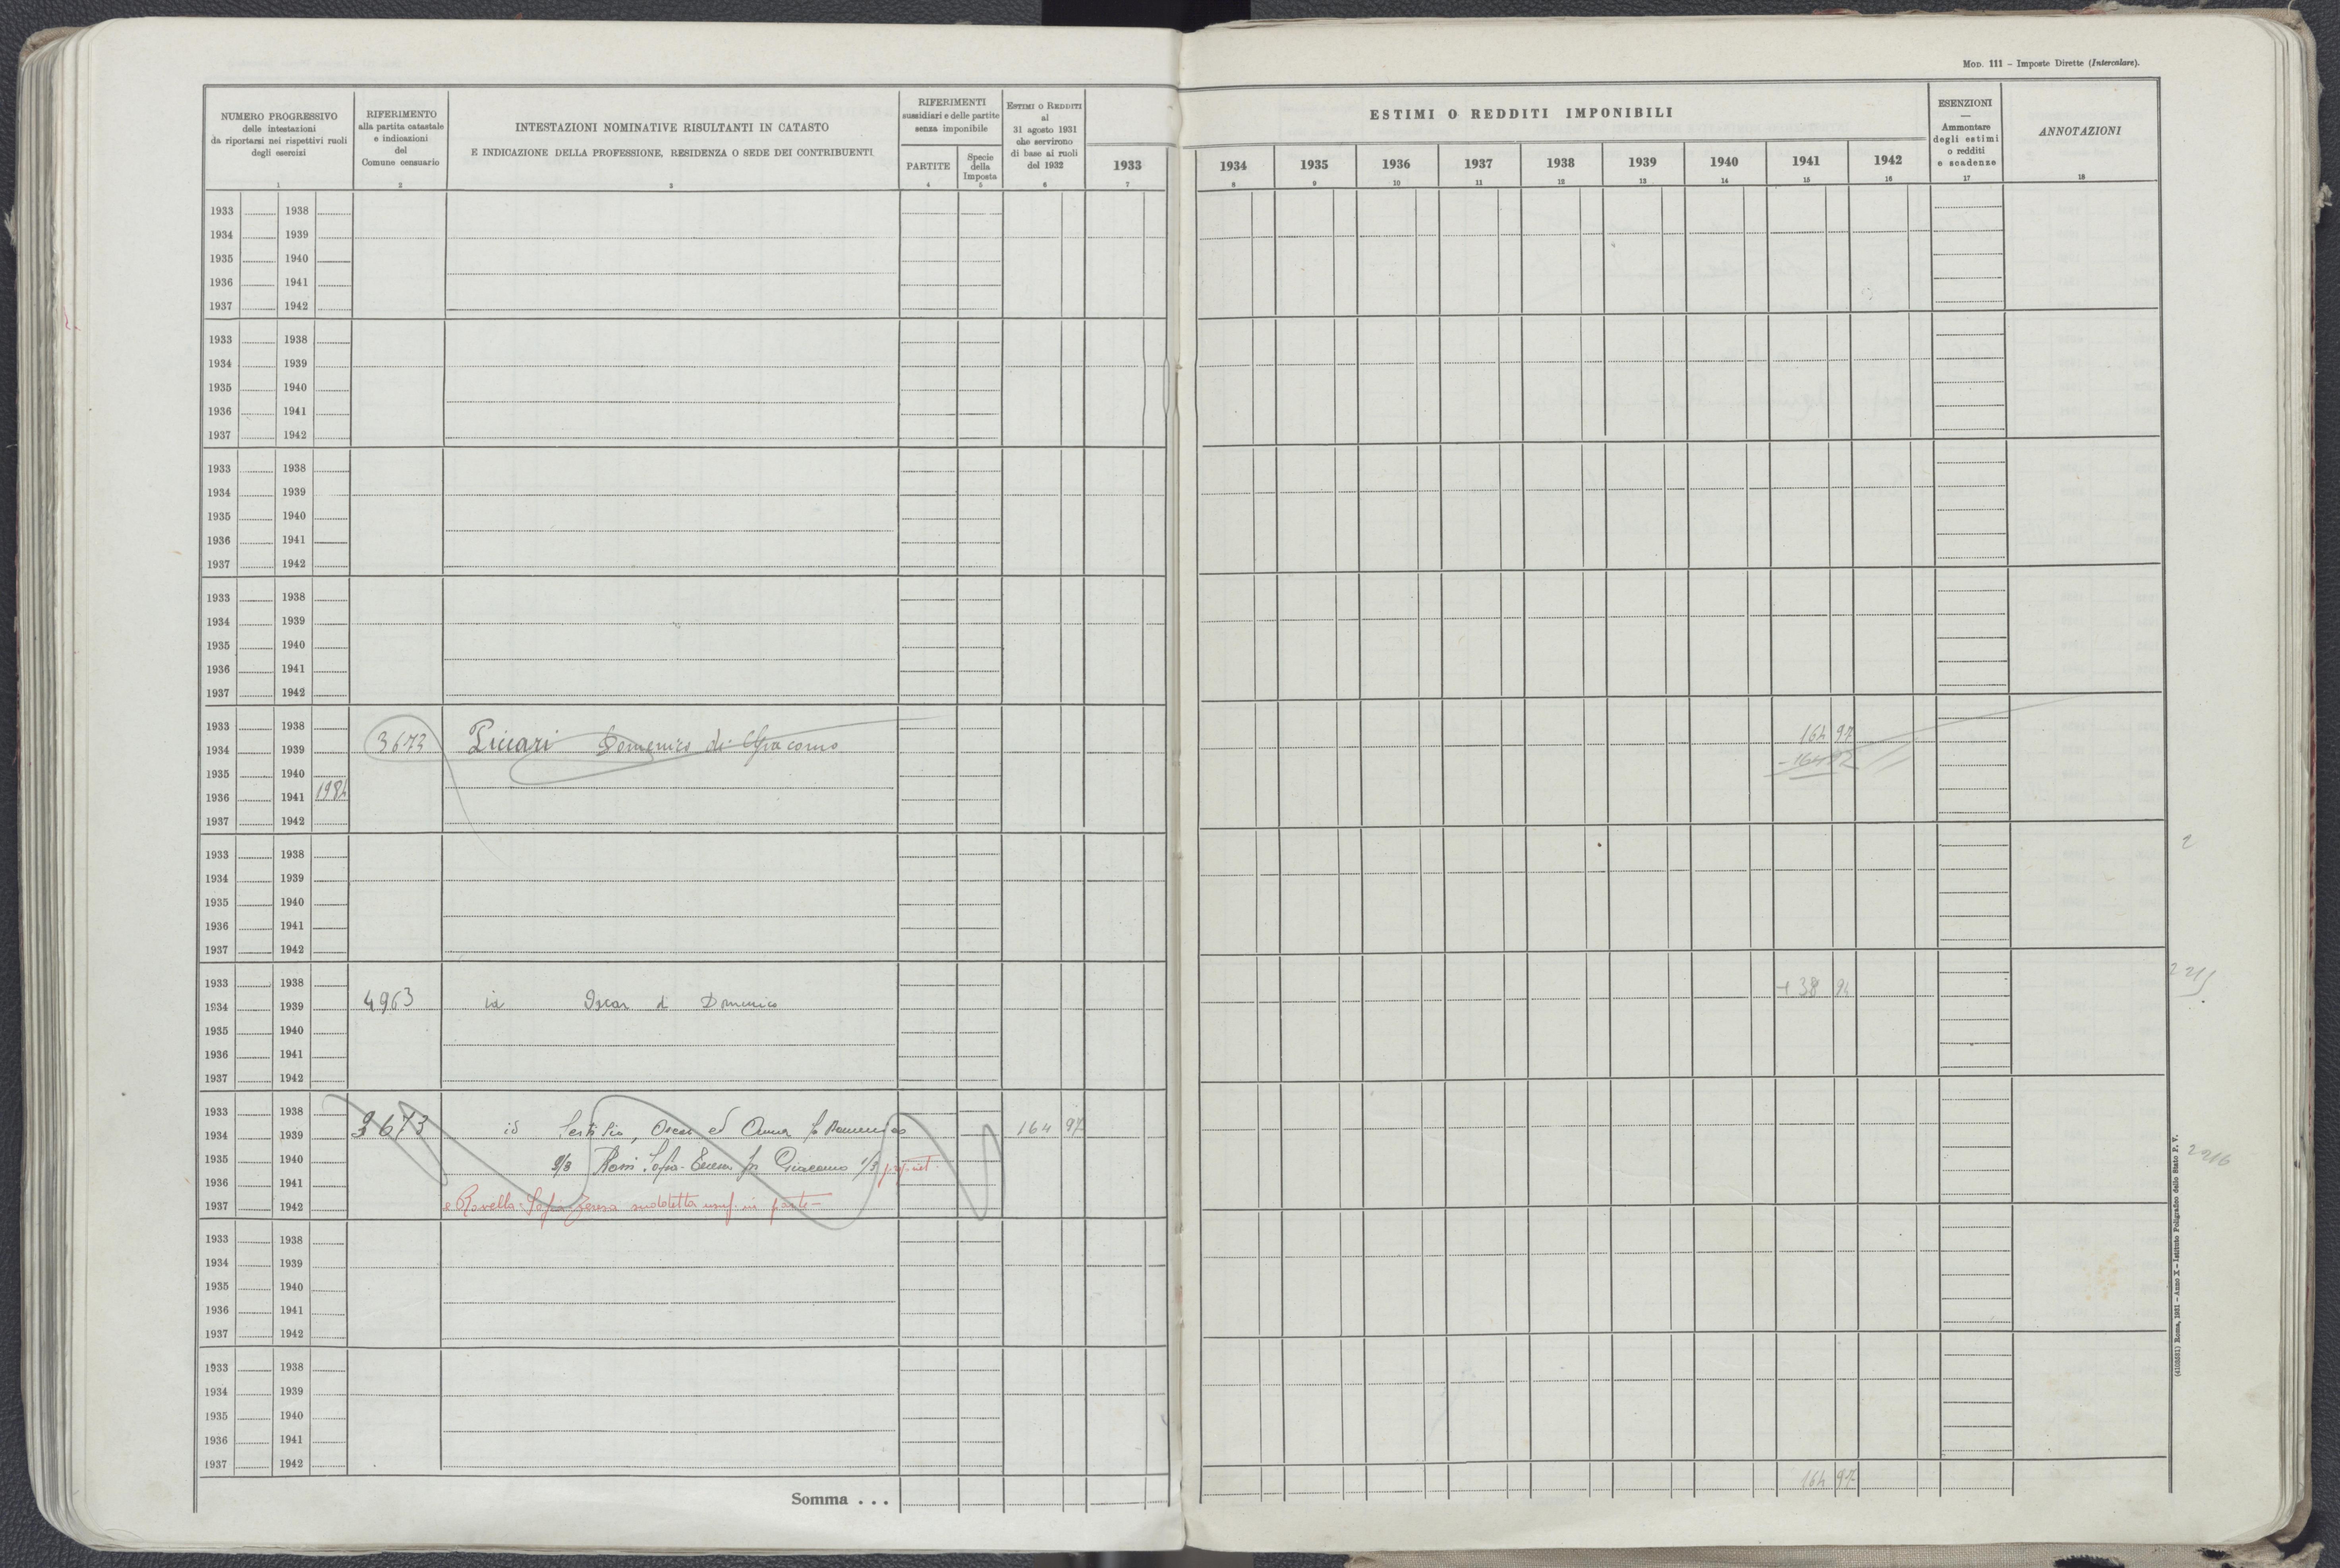 MOD. 111 – Imposte Dirette (Intercalare).
NUMERO PROGRESSIVO
delle intestazioni
da riportarsi nei rispettivi ruoli
degli esercizi
1
RIFERIMENTO
alla partita catastale
e indicazioni
del
Comune censuario
2
INTESTAZIONI NOMINATIVE RISULTANTI IN CATASTO
E INDICAZIONE DELLA PROFESSIONE, RESIDENZA O SEDE DEI CONTRIBUENTI
3
RIFERIMENTI
sussidiari e delle partite
senza imponibile
PARTITE
4
Specie
della
Imposta
5
ESTIMI O REDDITI
al
31 agosto 1931
che servirono
di base ai ruoli
del 1932
6
ESTIMI O REDDITI IMPONIBILI
1933 1934 1935 1936 1937 1938 1939 1940 1941 1942
7 8 9 10 11 12 13 14 15 16
ESENZIONI
—
Ammontare
degli estimi
o redditi
e scadenze
17
ANNOTAZIONI
18
1933 1938
1934 1939
1935 1940
1936 1941
1937 1942
1933 1938
1934 1939
1935 1940
1936 1941
1937 1942
1933 1938
1934 1939
1935 1940
1936 1941
1937 1942
1933 1938
1934 1939
1935 1940
1936 1941
1937 1942
1933 1938
1934 1939 3673 Piccari Domenico di Giacomo 164 97
1935 1940
1936 1941 1984
1937 1942
1933 1938
1934 1939
1935 1940
1936 1941
1937 1942
1933 1938
1934 1939 4963 id Oscar di Domenico + 38 94
1935 1940
1936 1941
1937 1942
2215
1933 1938
1934 1939 3673 id Oscar ed Anna fu Domenico 164 97
1935 1940 Rossi Giacomo 1/3
1936 1941
1937 1942 e Rovella Sofia Teresa suddetta usuf. in parte –
2216
1933 1938
1934 1939
1935 1940
1936 1941
1937 1942
1933 1938
1934 1939
1935 1940
1936 1941
1937 1942
Somma . . . 164 97
(4103531) Roma, 1931 – Anno X – Istituto Poligrafico dello Stato P. V.